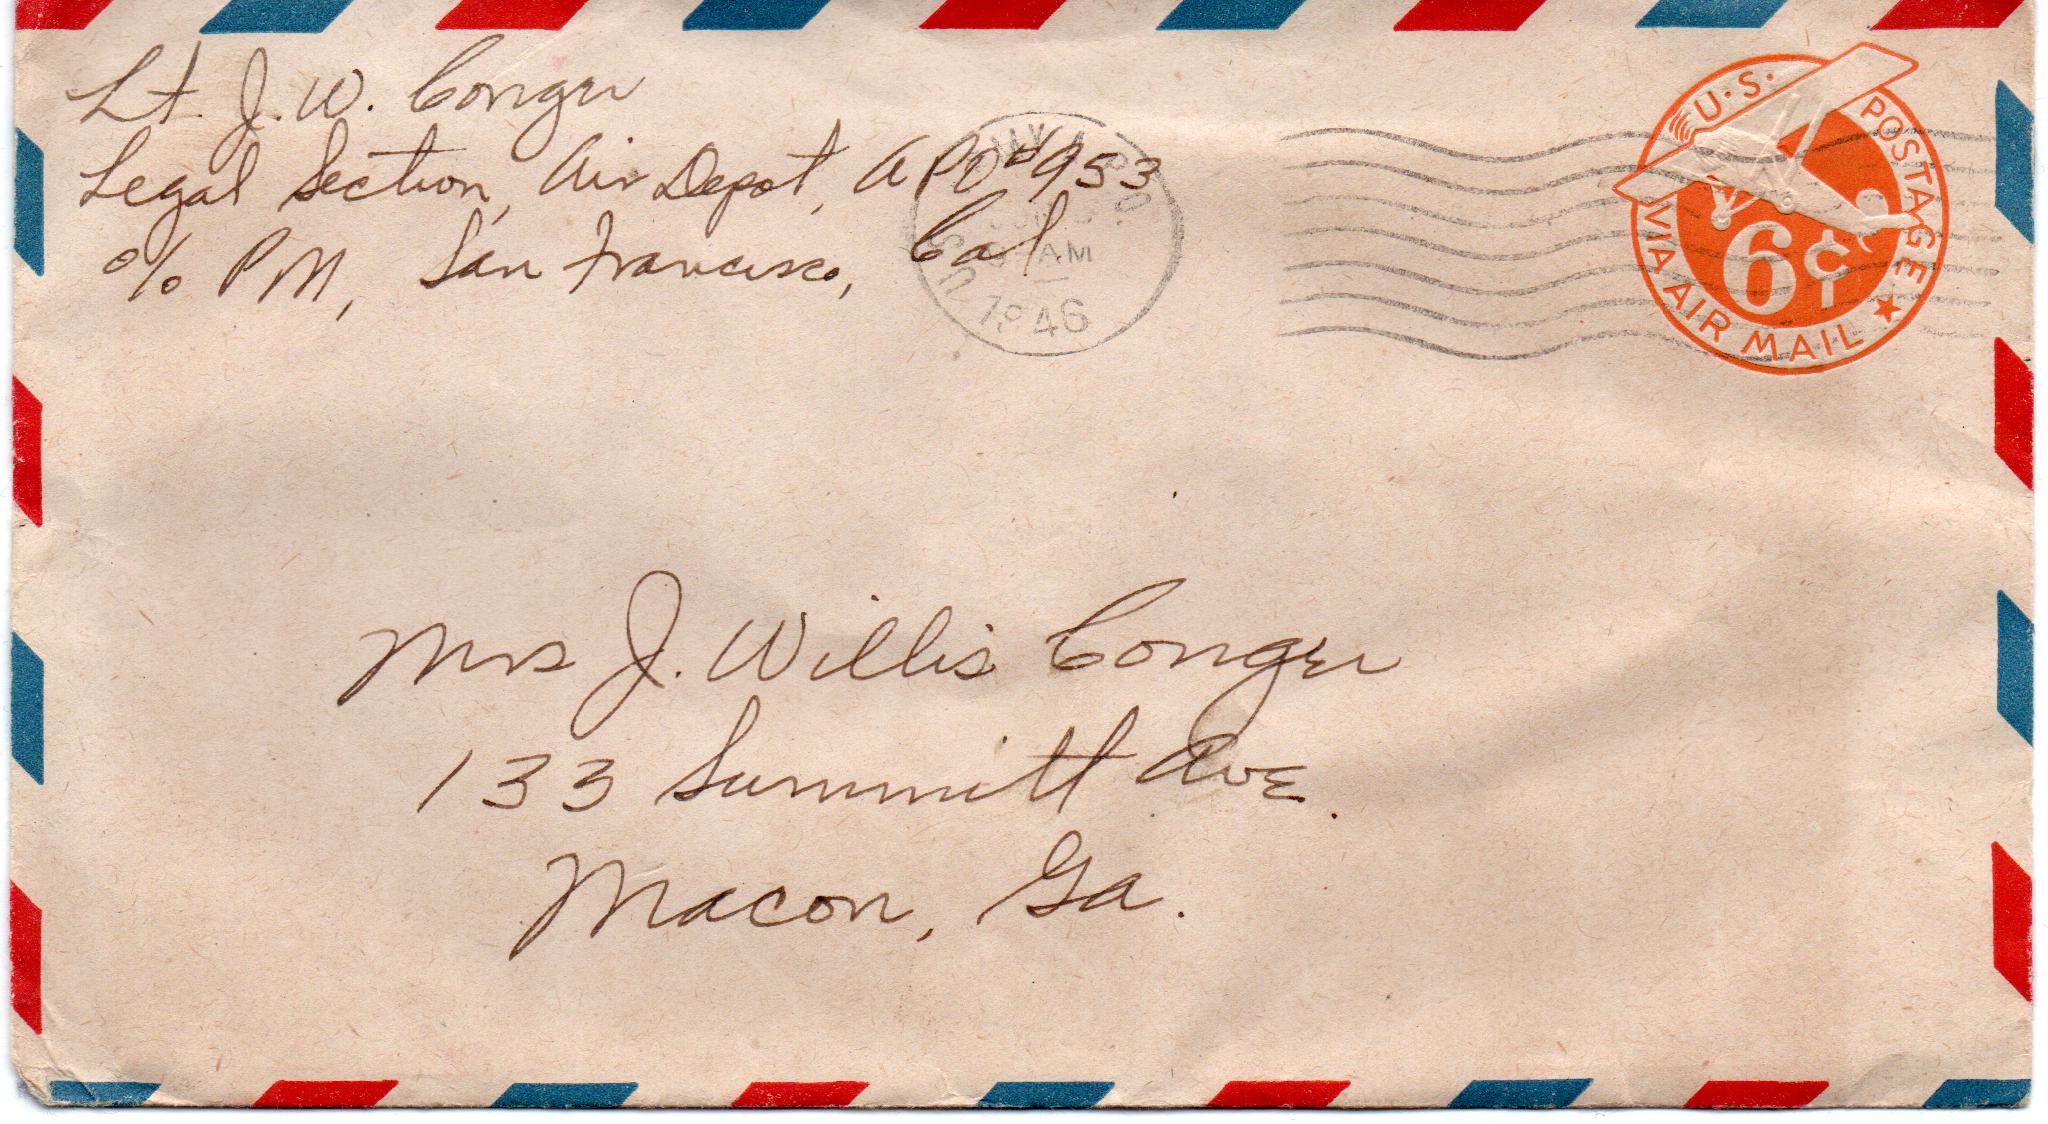 Lt. J. W. Conger
Legal Section, Air Depot, APO #953
c/o PM, San Francisco, Cal
U.S. ARMY P.O.
AM
1946
U.S. POSTAGE
6¢
VIA AIR MAIL
Mrs J. Willis Conger
133 Summitt Ave.
Macon, Ga.